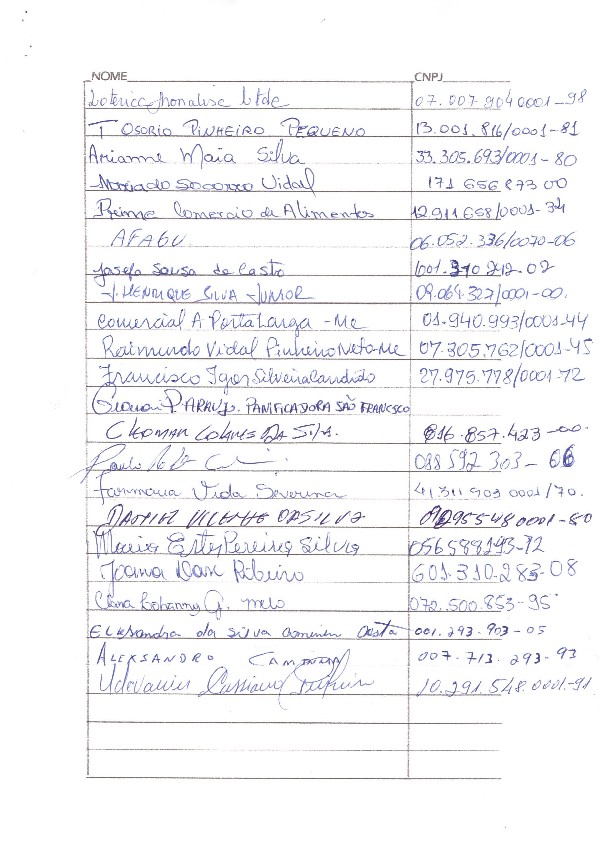 NOME CNPJ
Loterica Jhonalisa Ltda 07.007.904 0001-98
T OSORIO PINHEIRO PEQUENO 13.001.816/0001-81
Arianne Maia Silva 33.305.693/0001-80
Socorro Vidal 171 656 873 00
Prime Comercio de Alimentos 12 911 658/0001-34
AFAGU 06.052.336/0070-06
Josefa Sousa de Castro 001.310 212-02
J. HENRIQUE SILVA JUNIOR 09.064.327/0001-00.
Comercial A Porta Larga - Me 01.940.993/0001-44
Raimundo Vidal Pinheiro Neto-Me 07.305.762/0001-45
Francisco Igor Silveira Candido 27.975.778/0001-72
P. ARAUJO. PANIFICADORA SÃO FRANCISCO
CLEOMAR DA SILVA. 816.857.423-00.
Paulo 088 592 303-66
Farmacia Vida Severina 41 311 903 0001/70.
VICENTE DA SILVA 0001-80
Maria Ester Pereira Silva 056588193-72
Joana Ribeiro 601.310.283-08
G. melo 072.500.853-95
da silva Costa 001.293.903-05
ALEKSANDRO 007.713.293-93
10.291.548.0001-91